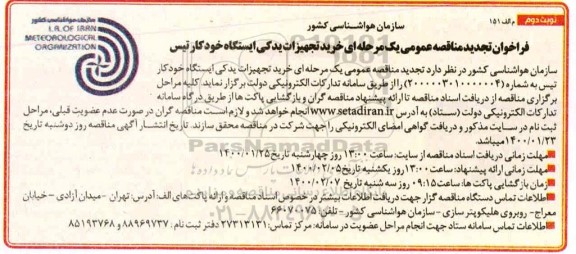 نوبت دوم
م الف ۱۵۱
سازمان هواشناسی کشور
I.R. OF IRAN
METEOROLOGICAL
ORGANIZATION
سازمان هواشناسی کشور
فراخوان تجدید مناقصه عمومی یک مرحله ای خرید تجهیزات یدکی ایستگاه خودکار تیس
سازمان هواشناسی کشور در نظر دارد تجدید مناقصه عمومی یک مرحله ای خرید تجهیزات یدکی ایستگاه خودکار
تیس به شماره (۲۰۰۰۰۰۳۰۱۰۰۰۰۰۰۴) را از طریق سامانه تدارکات الکترونیکی دولت برگزار نماید. کلیه مراحل
برگزاری مناقصه از دریافت اسناد مناقصه تا ارائه پیشنهاد مناقصه گران و بازگشایی پاکت ها از طریق درگاه سامانه
تدارکات الکترونیکی دولت (ستاد) به آدرس www.setadiran.ir انجام خواهد شد و لازم است مناقصه گران در صورت عدم عضویت قبلی، مراحل
ثبت نام در سایت مذکور و دریافت گواهی امضای الکترونیکی را جهت شرکت در مناقصه محقق سازند. تاریخ انتشار آگهی مناقصه روز دوشنبه تاریخ
۱۴۰۰/۰۱/۲۳ میباشد.
مهلت زمانی دریافت اسناد مناقصه از سایت: ساعت ۱۳:۰۰ روز چهارشنبه تاریخ ۱۴۰۰/۰۱/۲۵
مهلت زمانی ارائه پیشنهاد: ساعت ۱۳:۰۰ روز یکشنبه تاریخ ۱۴۰۰/۰۲/۰۵
زمان بازگشایی پاکت ها: ساعت ۰۹:۱۵ روز سه شنبه تاریخ ۱۴۰۰/۰۲/۰۷
اطلاعات تماس دستگاه مناقصه گزار جهت دریافت اطلاعات بیشتر در خصوص اسناد مناقصه و ارائه پاکت های الف: آدرس: تهران - میدان آزادی - خیابان
معراج - روبروی هلیکوپتر سازی - سازمان هواشناسی کشور - تلفن: ۶۶۰۷۰۰۷۵
اطلاعات تماس سامانه ستاد جهت انجام مراحل عضویت در سامانه: مرکز تماس: ۲۷۳۱۳۱۳۱ دفتر ثبت نام: ۸۸۹۶۹۷۳۷ و ۸۵۱۹۳۷۶۸
ParsNamadData